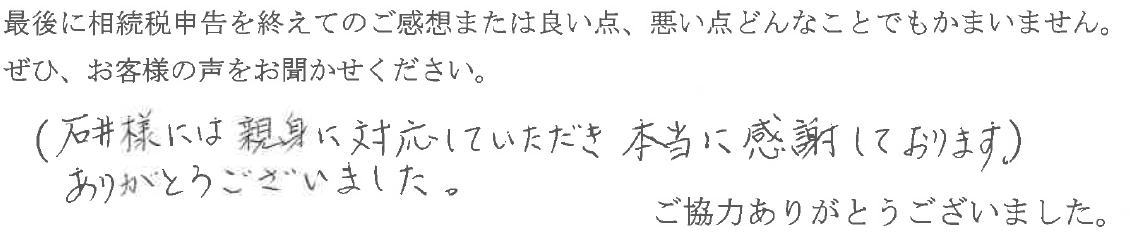 最後に相続税申告を終えてのご感想または良い点、悪い点どんなことでもかまいません。
ぜひ、お客様の声をお聞かせください。
(石井様には親身に対応していただき 本当に感謝しております。)
ありがとうございました。
ご協力ありがとうございました。